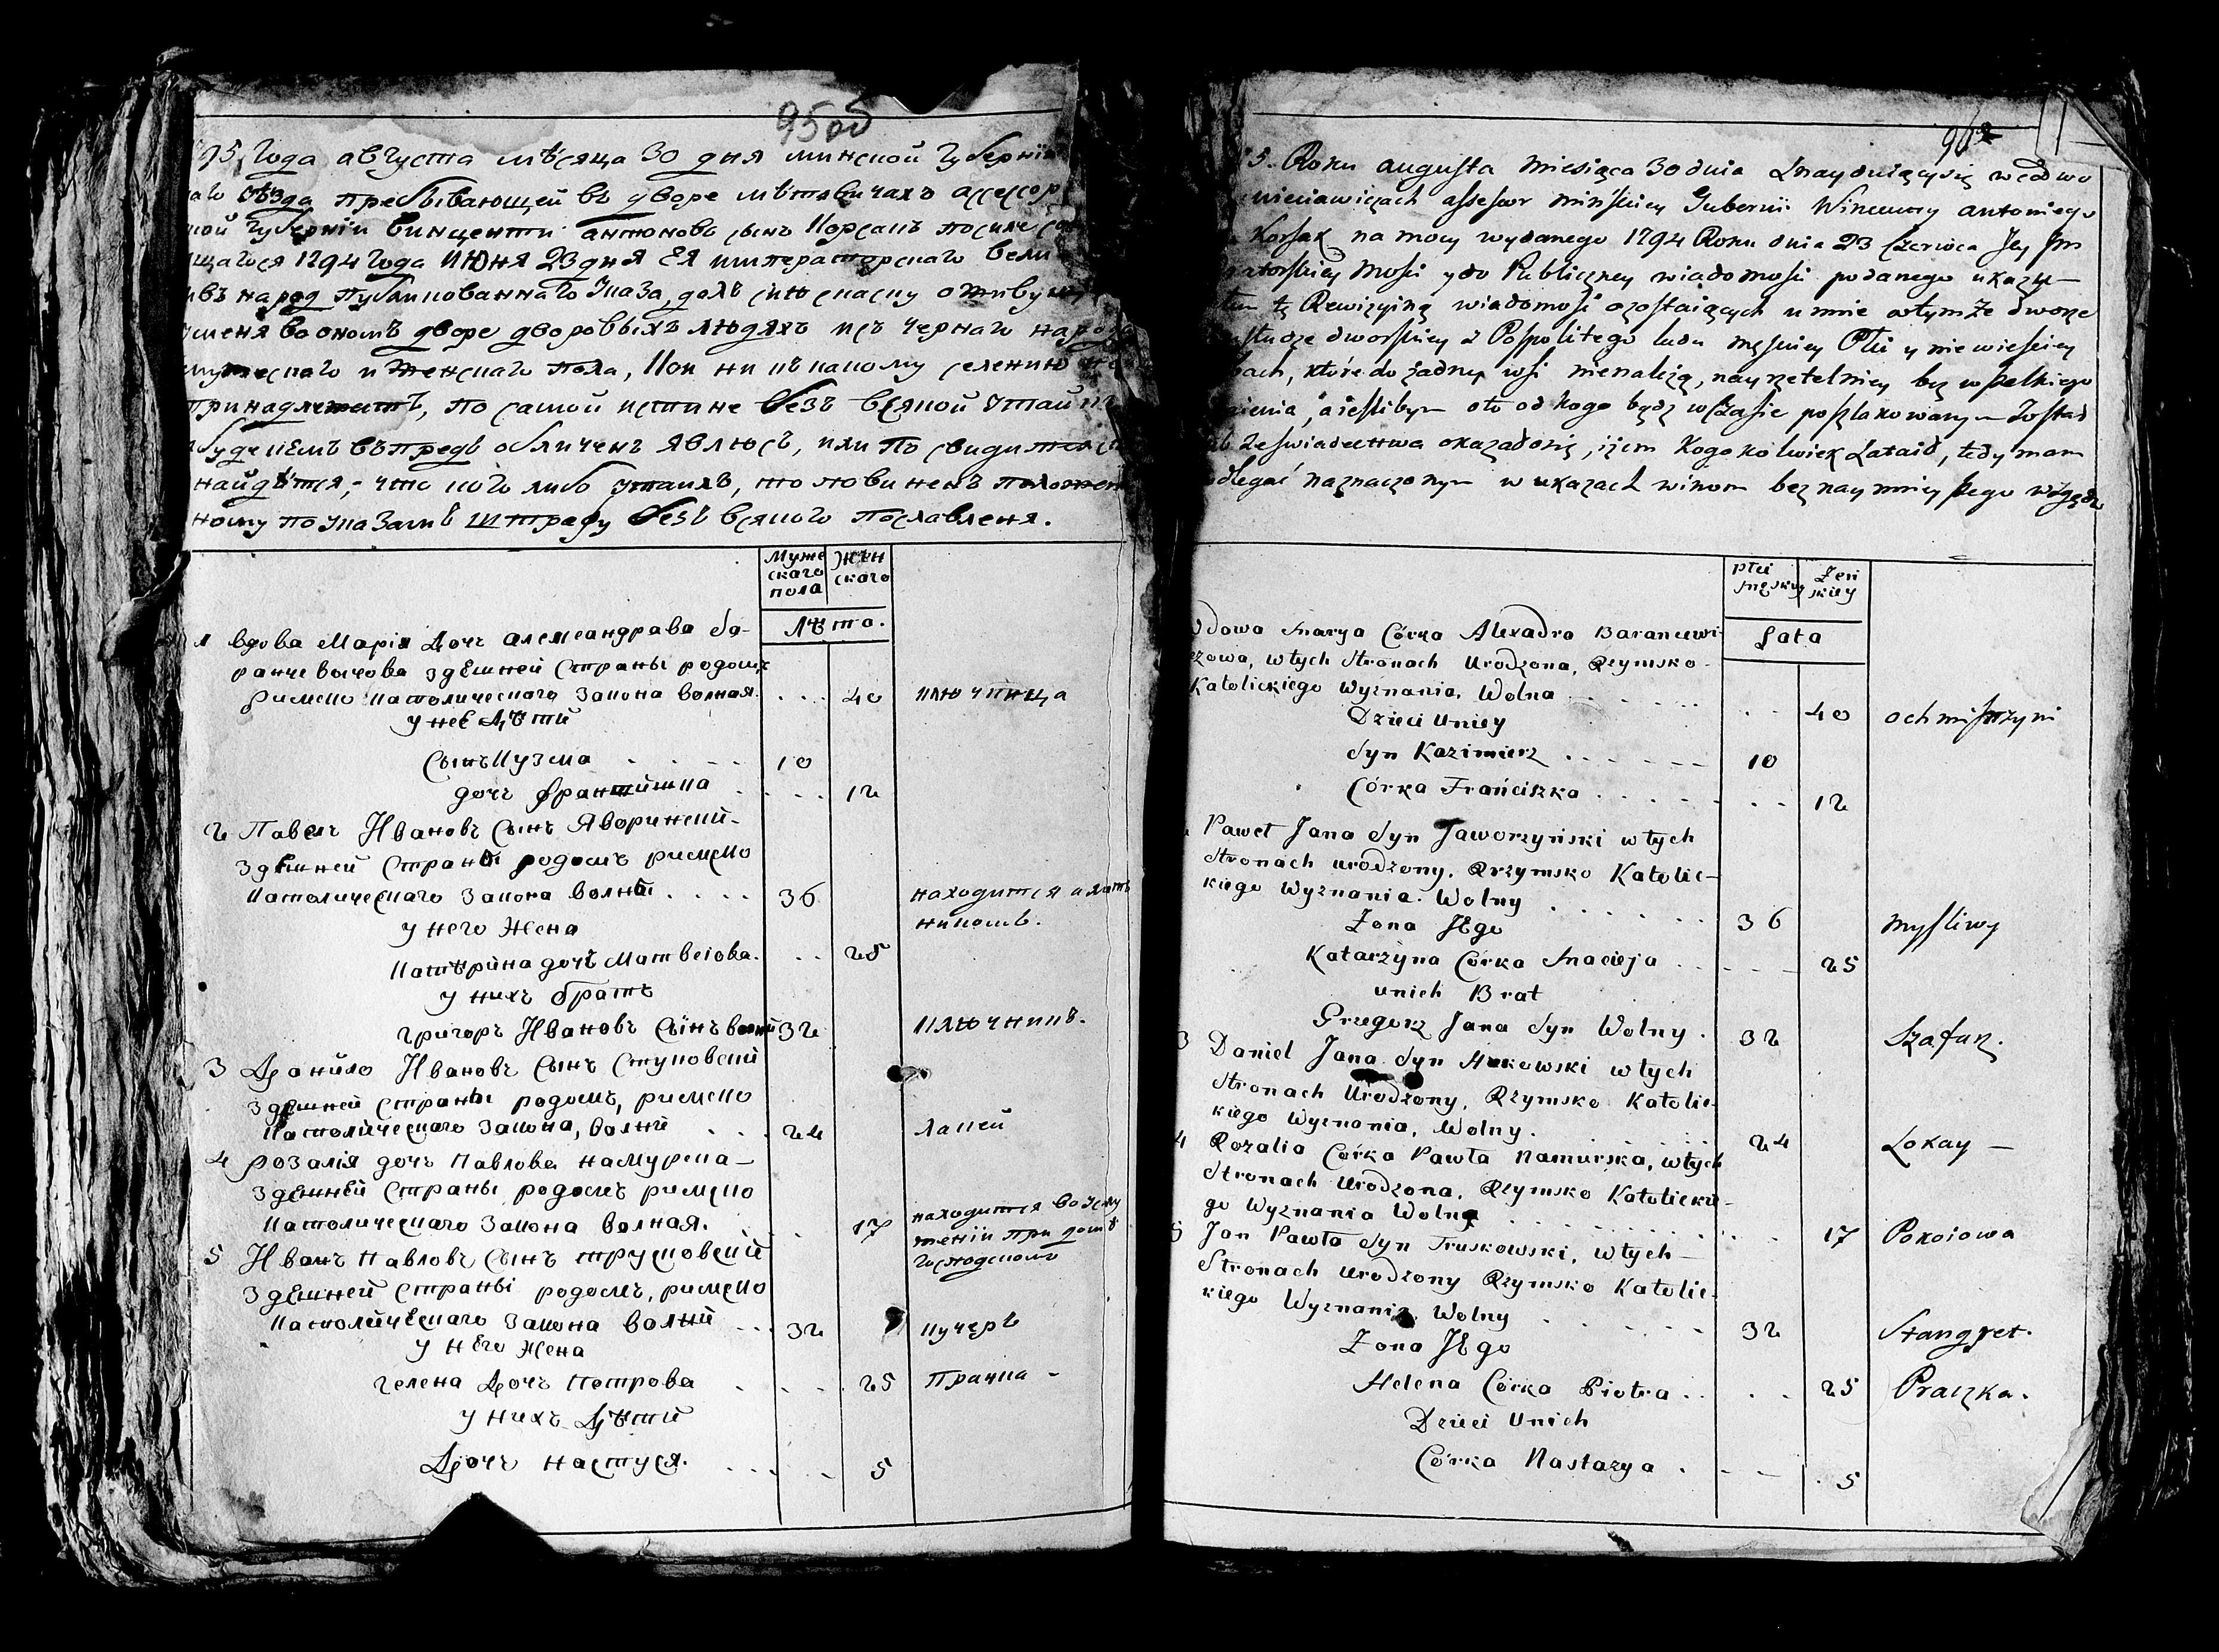 95об
95 года августа мѣсяца 30 дня минской губерніи
уѣзда пребывающей въ дворе мѣтявичахъ ассесоръ
губерніи винценти антоновъ сынъ Корсакъ по силе
1794 года Июня 23 дня Ея императорскаго вели
въ народ публикованнаго Указа, далъ сию скаску о живущихъ
уменя во ономъ дворе дворовыхъ людяхъ исъ чернаго народа
мужескаго и женскаго пола, кои ни къ какому селению не
принадлежитъ, по самой истине безъ всякой утайки
буде кемъ въпредь обличенъ явлюсъ, или по свидителс
найдѣтся, что кого либо утаилъ, то повиненъ положен
ному по указамъ штрафу безъ всякого пославленя.
Муже
скаго
пола
Жен
скаго
Лѣта.
1 вдова Марія дочь алемеандрава ба-
ранчевычова здешней страны родомъ
римско католическаго закона волная. . . . 40 ключница
у неё дѣти
сынъ Кузма . . . . 10
дочь францишка . . . . 12
2 Павелъ Ивановъ сынъ Яворинский-
здешней страны родомъ римско
католическаго закона волны . . . . 36 находится
у него жена
катерина дочь матвеюва. . . 25
у нихъ братъ
григоръ Ивановъ сынъ волный 32 ключникъ.
3 Данило Ивановъ сынъ стуковский
здешней страны родомъ, римско
католическаго закона, волный . . . 24 лакей
4 розалія дочь Павлова намурска-
здешней страны родомъ римско
католическаго закона волная. . . 17 находится во услу
женіи при домѣ
господскомъ
5 Иванъ Павловъ сынъ трусковский
здешней страны родомъ, римско
католическаго закона волный . . . 32 кучеръ
у него жена
гелена дочь Петрова . . . . 25 Прачка -
у нихъ дѣти
дочь настуся. . . . . . 5
96
11
5. Roku augusta miesiąca 30 dnia Znayduiący się wedwo
assesor mińskiey Gubernii Wincenty antoniego
Korsak na mocy wydanego 1794 Roku dnia 23 Czerwca Jey Im
ratorskiey Mosci y do Publiczney wiadomosci podanego ukazu-
tę Rewizyiną wiadomość ozostaiących umnie wtymże dworze
słudze dworskiey z Pospolitego ludu męskiey Płci y niewieściey
bach, które do żadney wsi nienależą, nayrzetelniey bez wszelkiego
ienia, aieslibym oto od kogo będz wczasie poszlakowanym Został
ze swiadectwa okazałosię, iżem Kogokolwiek Zataił, tedy mam
dlegać naznaczonym w ukazach winom bez naymnieyszego względu
Płci
męskiey
Żen
skiey
Lata
dowa Marya Córka Alexadra Barancewi-
czowa, wtych Stronach Urodzona, Rzymsko-
Katolickiego Wyznania, Wolna . . . . . . 40 ochmistrzyni
Dzieci Uniey
Syn Kazimierz . . . . . . 10
Córka Franciszka . . . . . . . 12
Paweł Jana Syn Jaworzyński wtych
Stronach urodzony. Rzymsko Katolic-
kiego Wyznania. Wolny . . . . . . 36 myśliwy
Żona JEgo
Katarzyna Córka Macieja . . . . . 25
unich Brat
Grzegorz Jana Syn Wolny . 32 Szafarz.
3 Daniel Jana Syn wtych
Stronach Urodzony, Rzymsko Katolic-
kiego Wyznania, Wolny. . . . . 24 Lokay -
4 Rozalia Córka Pawła Namurska, wtych
Stronach Urodzona. Rzymsko Katolickie-
go Wyznania Wolna . . . . . . . 17 Pokoiowa
5 Jan Pawła Syn Truskowski, wtych-
Stronach urodzony Rzymsko Katolic-
kiego Wyznania Wolny . . . . . 32 Stangret.
Żona JEgo
Helena Córka Piotra . . . . 25 Praczka.
Dzieci Unich
Córka Nastazya . . . . 5